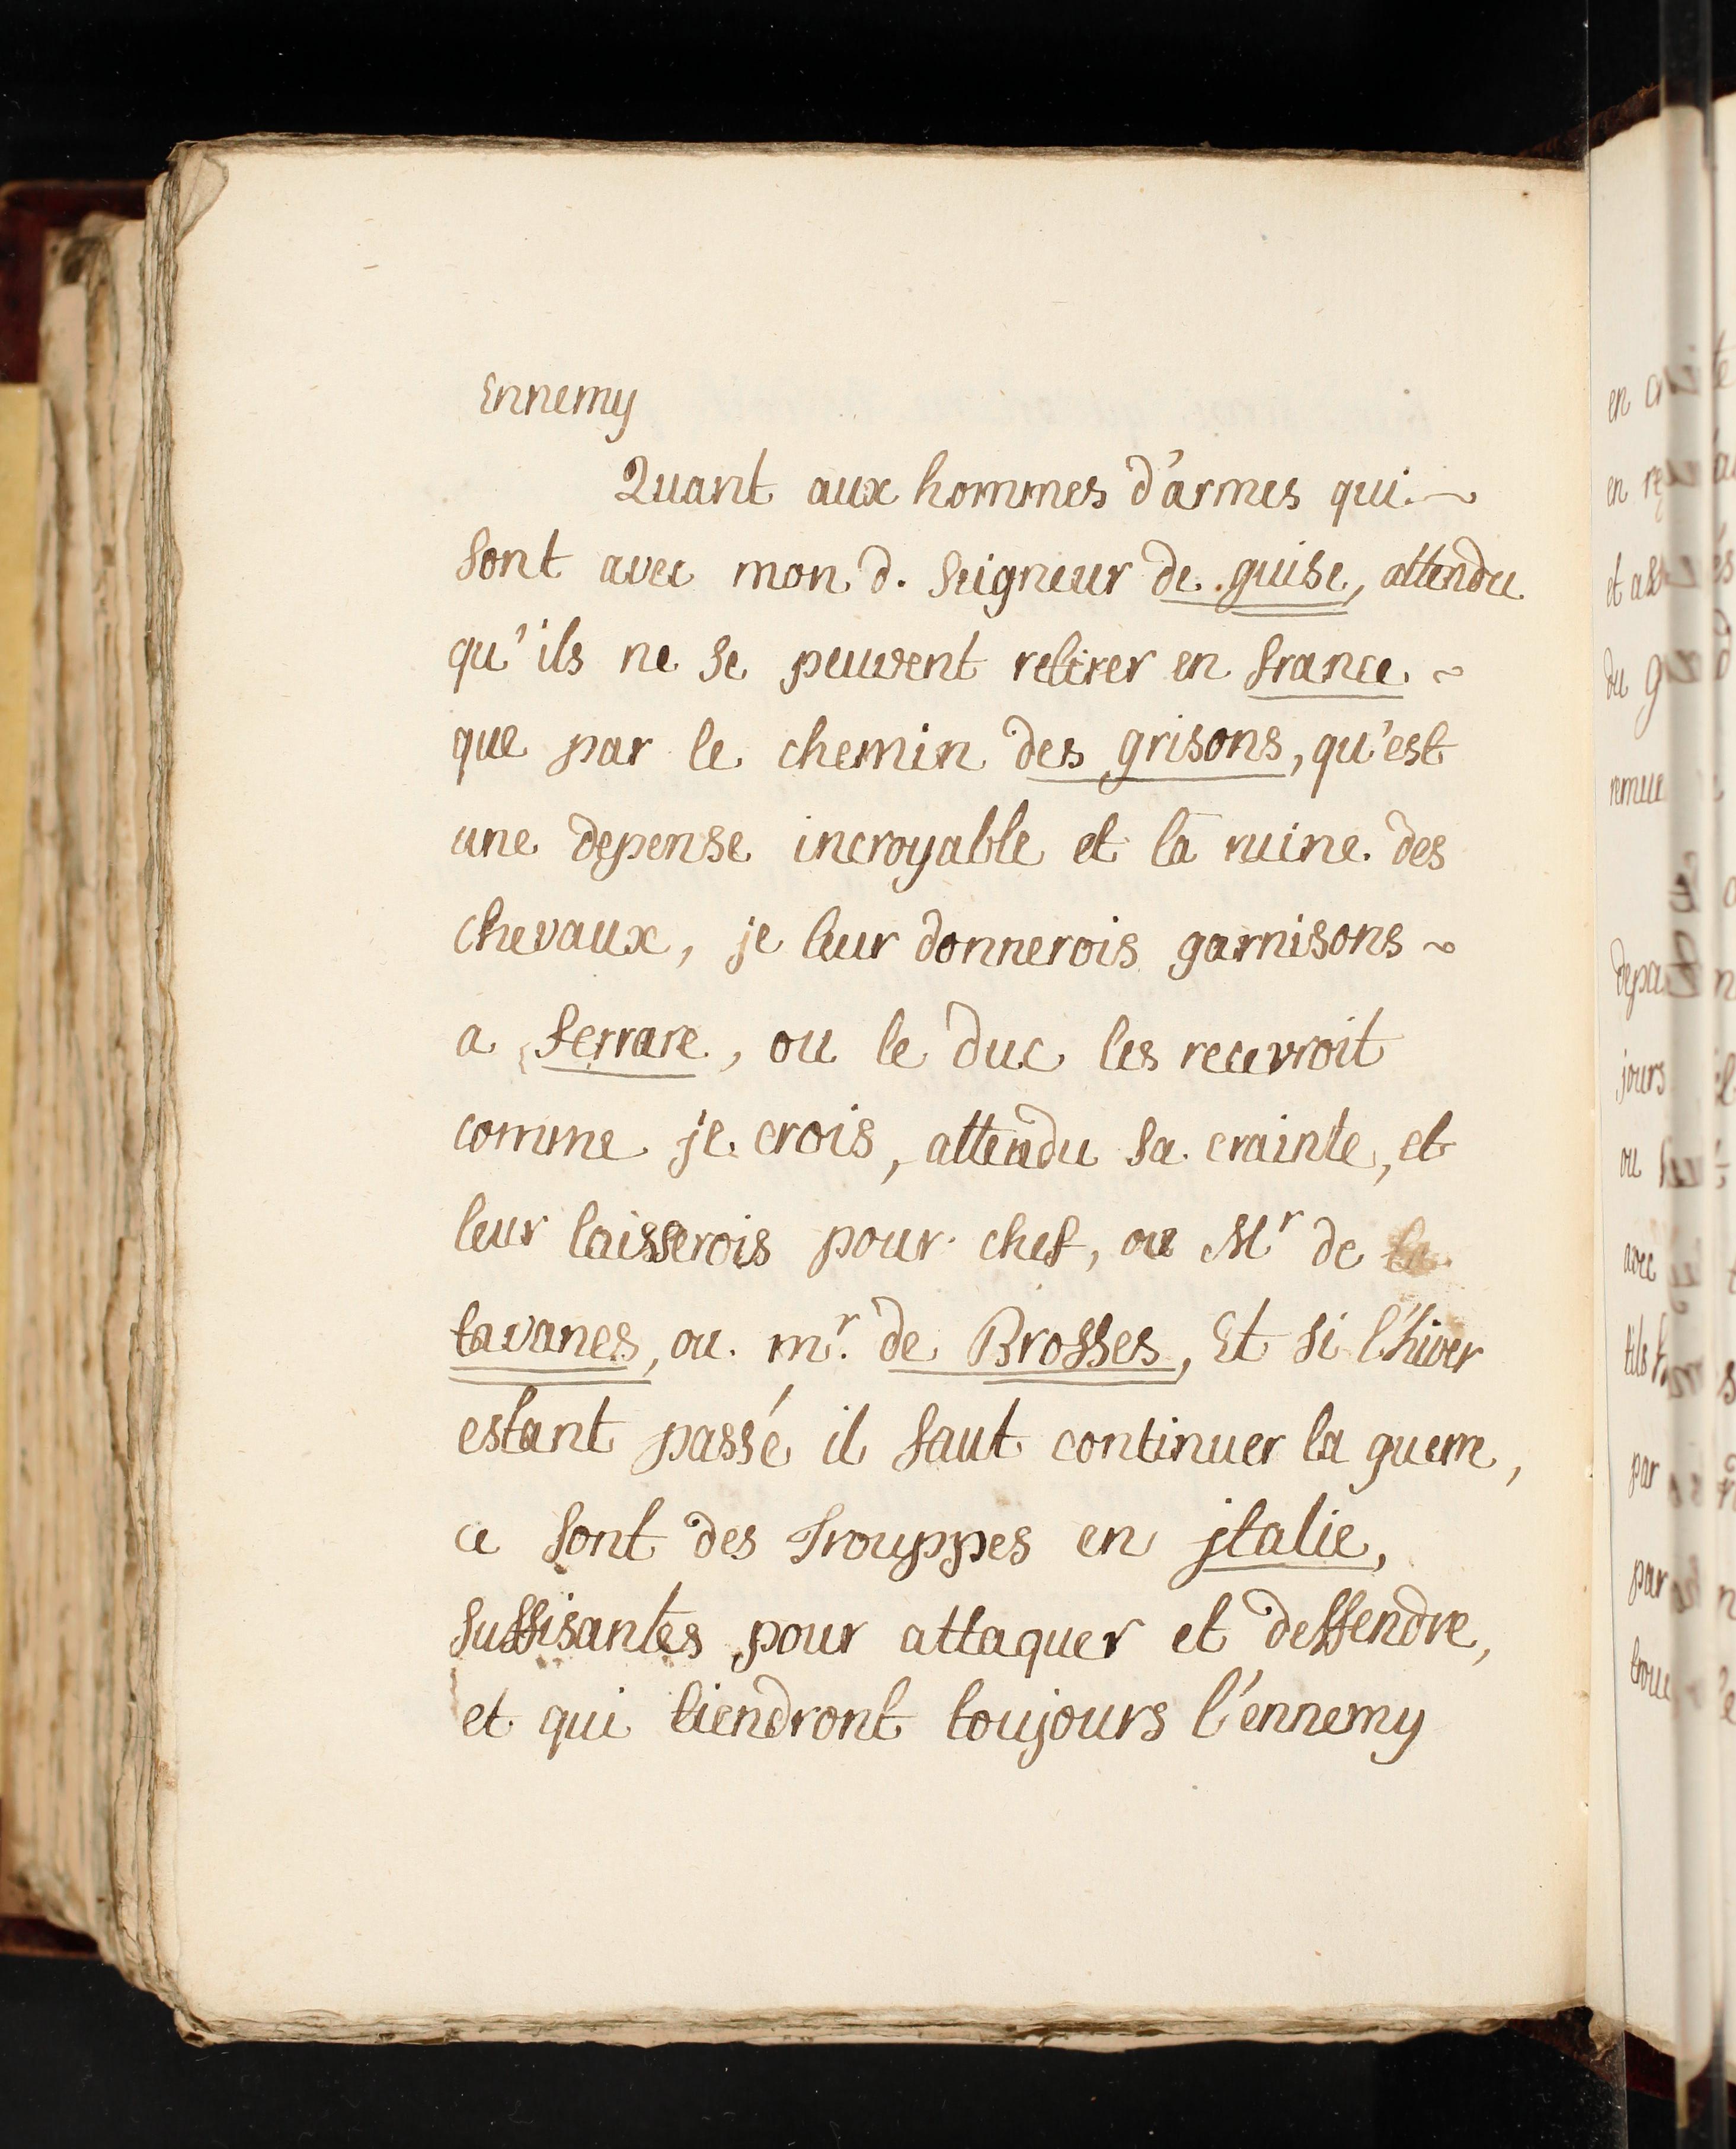 Ennemy
Quant aux hommes d'armes qui ~
sont avec mon d. seigneur de guise, attendu
qu'ils ne se peuvent retirer en france ~
que par le chemin des grisons, qu'est
une depense incroyable et la ruine des
chevaux, je leur donnerois garnisons ~
a ferrare, ou le duc les recevroit
comme je crois, attendu sa crainte, et
leur laisserois pour chef, ou Mr de
tavanes, ou mr. de Brosses, Et si l'hiver
estant passé il faut continuer la guerre,
ce sont des Trouppes en jtalie,
suffisantes pour attaquer et deffendre,
et qui tiendront toujours l'ennemy